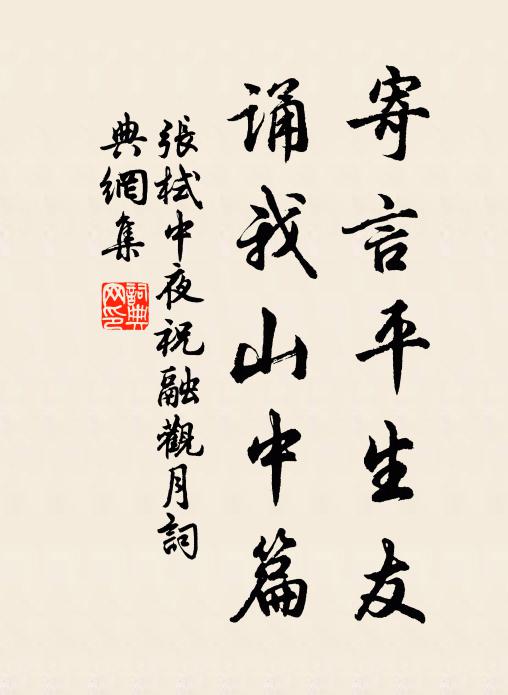 寄言平生友
誦我山中篇
張栻中夜祝融觀月詞
典網集
詞典
网印